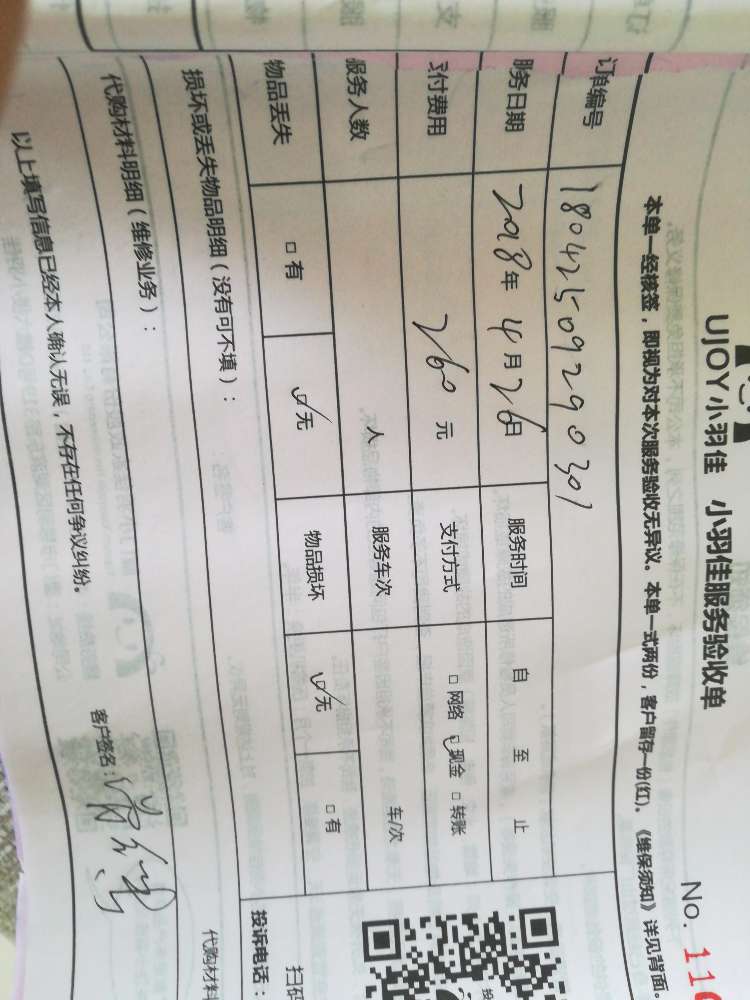 UJOY小羽佳 小羽佳服务验收单
No. 116
本单一经核签，即视为对本次服务验收无异议。本单一式两份，客户留存一份(红)。《维保须知》详见背面
订单编号 18042509290301
服务日期 2018年4月26日 服务时间 自 至 止
支付费用 260元 支付方式 □网络 ☑现金 □转账
服务人数 人 服务车次 车/次
物品丢失 □有 ☑无 物品损坏 ☑无 □有
损坏或丢失物品明细（没有可不填）：
投诉电话：
扫码
代购材料明细（维修业务）：
代购材料
以上填写信息已经本人确认无误，不存在任何争议纠纷。
客户签名：